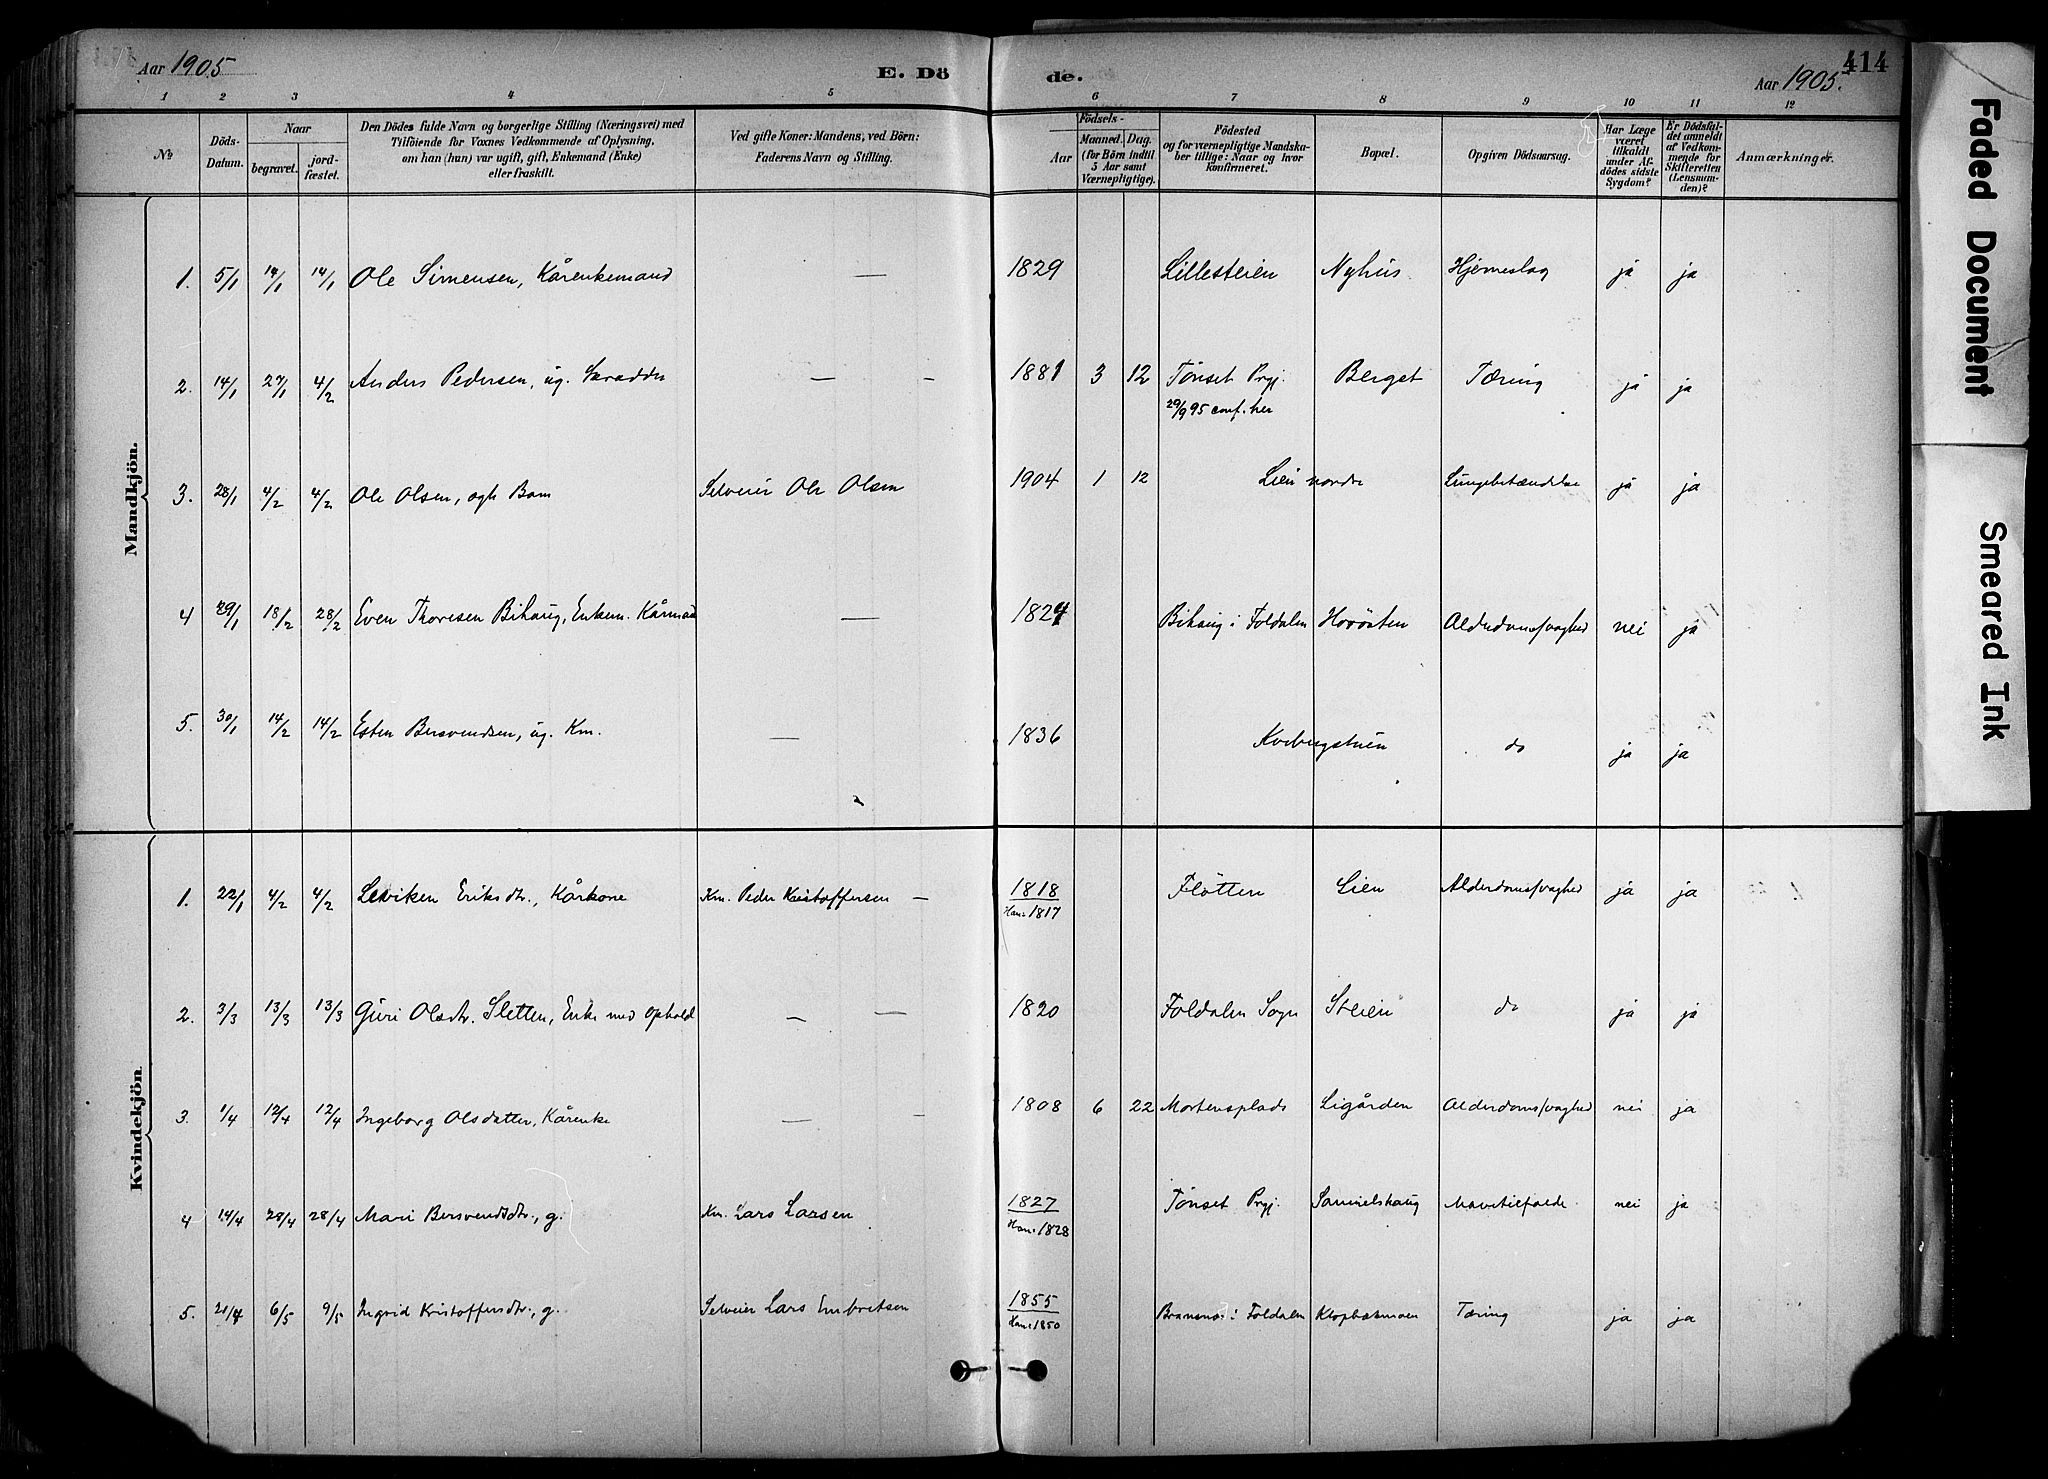 Aar 1905
E. Dö
de.
Aar 1905.
414
1 2 3 4 5 6 7 8 9 10 11 12
No
Döds-Datum.
Naar
begravet.
jord-fæstet.
Den Dödes fulde Navn og borgerlige Stilling (Næringsvei) med
Tilföiende for Voxnes Vedkommende af Oplysning,
om han (hun) var ugift, gift, Enkemand (Enke)
eller fraskilt.
Ved gifte Koner: Mandens, ved Börn:
Faderens Navn og Stilling.
Födsels-
Aar
Maaned. Dag.
(for Börn indtil
5 Aar samt
Værnepligtige).
Födested
og for værnepligtige Mandska-
ber tillige: Naar og hvor
konfirmeret.
Bopæl.
Opgiven Dödsaarsag.
Har Læge
været
tilkaldt
under Af-
dödes sidste
Sygdom?
Er Dödsfal-
det anmeldt
af Vedkom-
mende for
Skifteretten
(Lensman-
den)?
Anmærkninger.
Mandkjön.
1. 5/1 14/1 14/1 Ole Simensen, Kårenkemand — 1829 Lillesteien Nyhus Hjerneslag ja ja
2. 14/1 27/1 4/2 Anders Pedersen, ug. — — 1881 3 12 Tönset Prgj. Berget Tæring ja ja
29/9 95 conf. her
3. 28/1 4/2 4/2 Ole Olsen, egte Barn Selveier Ole Olsen 1904 1 12 Lien nordre Lungebetændelse ja ja
4 29/1 18/2 28/2 Even Thoresen Bihaug, Enkem. Kårmand — 1824 Bihaug i Foldalen Alderdomssvaghed nei ja
5. 30/1 14/2 14/2 Esten Bersvendsen, ug. Km. — 1836 do ja ja
Kvindekjön.
1. 22/1 4/2 4/2 Eriksdtr., Kårkone Km. Peder Kristoffersen — 1818 Flötten Lien Alderdomssvaghed ja ja
Han: 1817
2. 3/3 13/3 13/3 Guri Olsdtr. Sletten, Enke med Ophold — — 1820 Foldalen Sogn Steien do ja ja
3. 1/4 12/4 12/4 Ingeborg Olsdatter, Kårenke — — 1808 6 22 Mortensplads Ligården Alderdomssvaghed nei ja
4 14/4 28/4 28/4 Mari Bersvendsdtr., g. Km. Lars Larsen 1827 Tönset Prgj. Samuelshaug Mavetilfælde. nei ja
Han: 1828
5. 21/4 6/5 9/5 Ingrid Kristoffersdtr., g. Selveier Lars Embretsen 1855 i Foldalen Klopbækmoen Tæring ja ja
Han: 1850
Faded Document
Smeared Ink